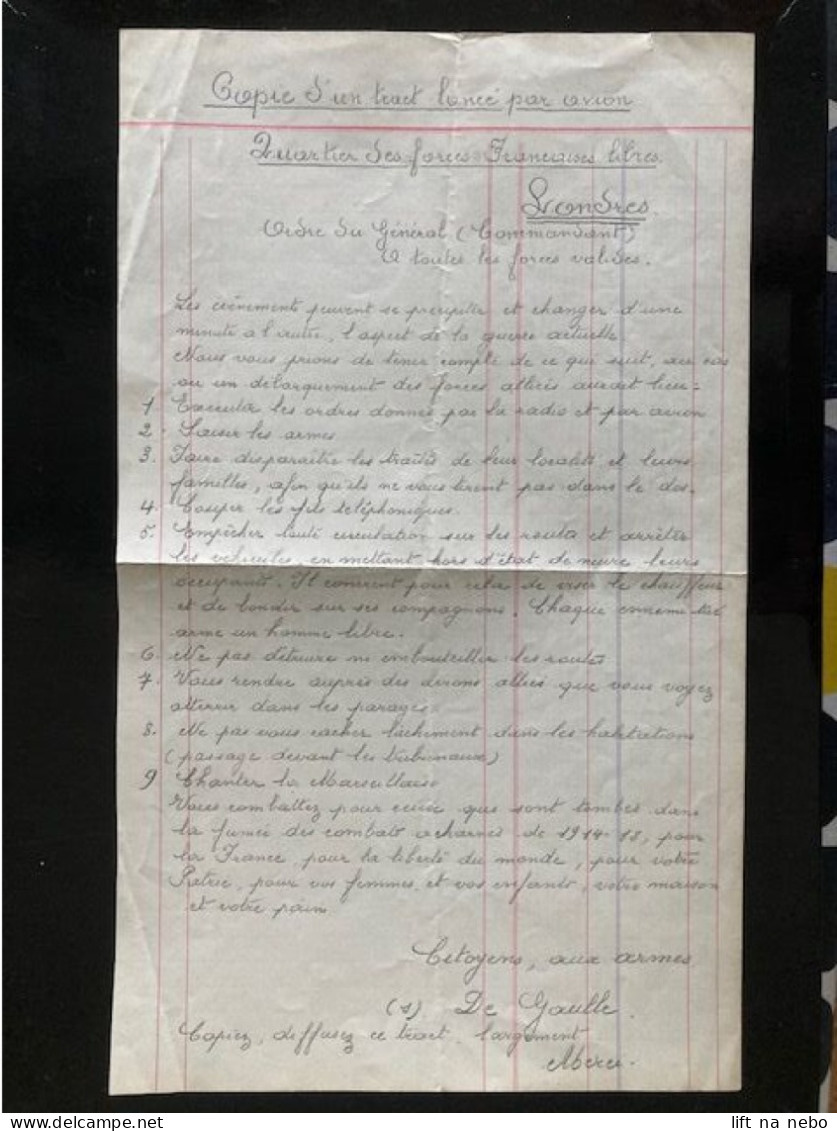 Copie d'un tract lancé par avion
Quartier des forces Francaises libres.
Londres.
Ordre du Général (Commandant)
A toutes les forces valides.
Les évènements peuvent se precipiter et changer d'une
minute a l'autre, l'aspect de la guerre actuelle
Nous vous prions de tenir compte de ce qui suit, au cas
ou un débarquement des forces alliées aurait lieu =
1 Executer les ordres donnés par la radio et par avion
2. Saisir les armes
3. Faire disparaître les traitres de leur localité et leurs
familles, afin qu'ils ne vous tirent pas dans le dos.
4. Couper les fils téléphoniques.
5. Empêcher toute circulation sur les routes et arrêter
les véhicules, en mettant hors d'état de nuire leurs
occupants. Il convient pour cela de viser le chauffeur
et de bondir sur ses compagnons. Chaque ennemi tué
arme un homme libre.
6. Ne pas détruire ni embouteiller les routes
7. Vous rendre auprès des avions alliés que vous voyez
atterrir dans les parages.
8. Ne pas vous cacher lâchement dans les habitations
(passage devant les tribunaux)
9 Chanter la Marseillaise
Vous combattez pour ceux que sont tombés dans
la fumée des combats acharnés de 1914-18, pour
la France, pour la liberté du monde, pour votre
Patrie, pour vos femmes, et vos enfants, votre maison
et votre pain.
Citoyens, aux armes
(s) De Gaulle.
Copiez, diffusez ce tract largement
Merci.
lift na nebo